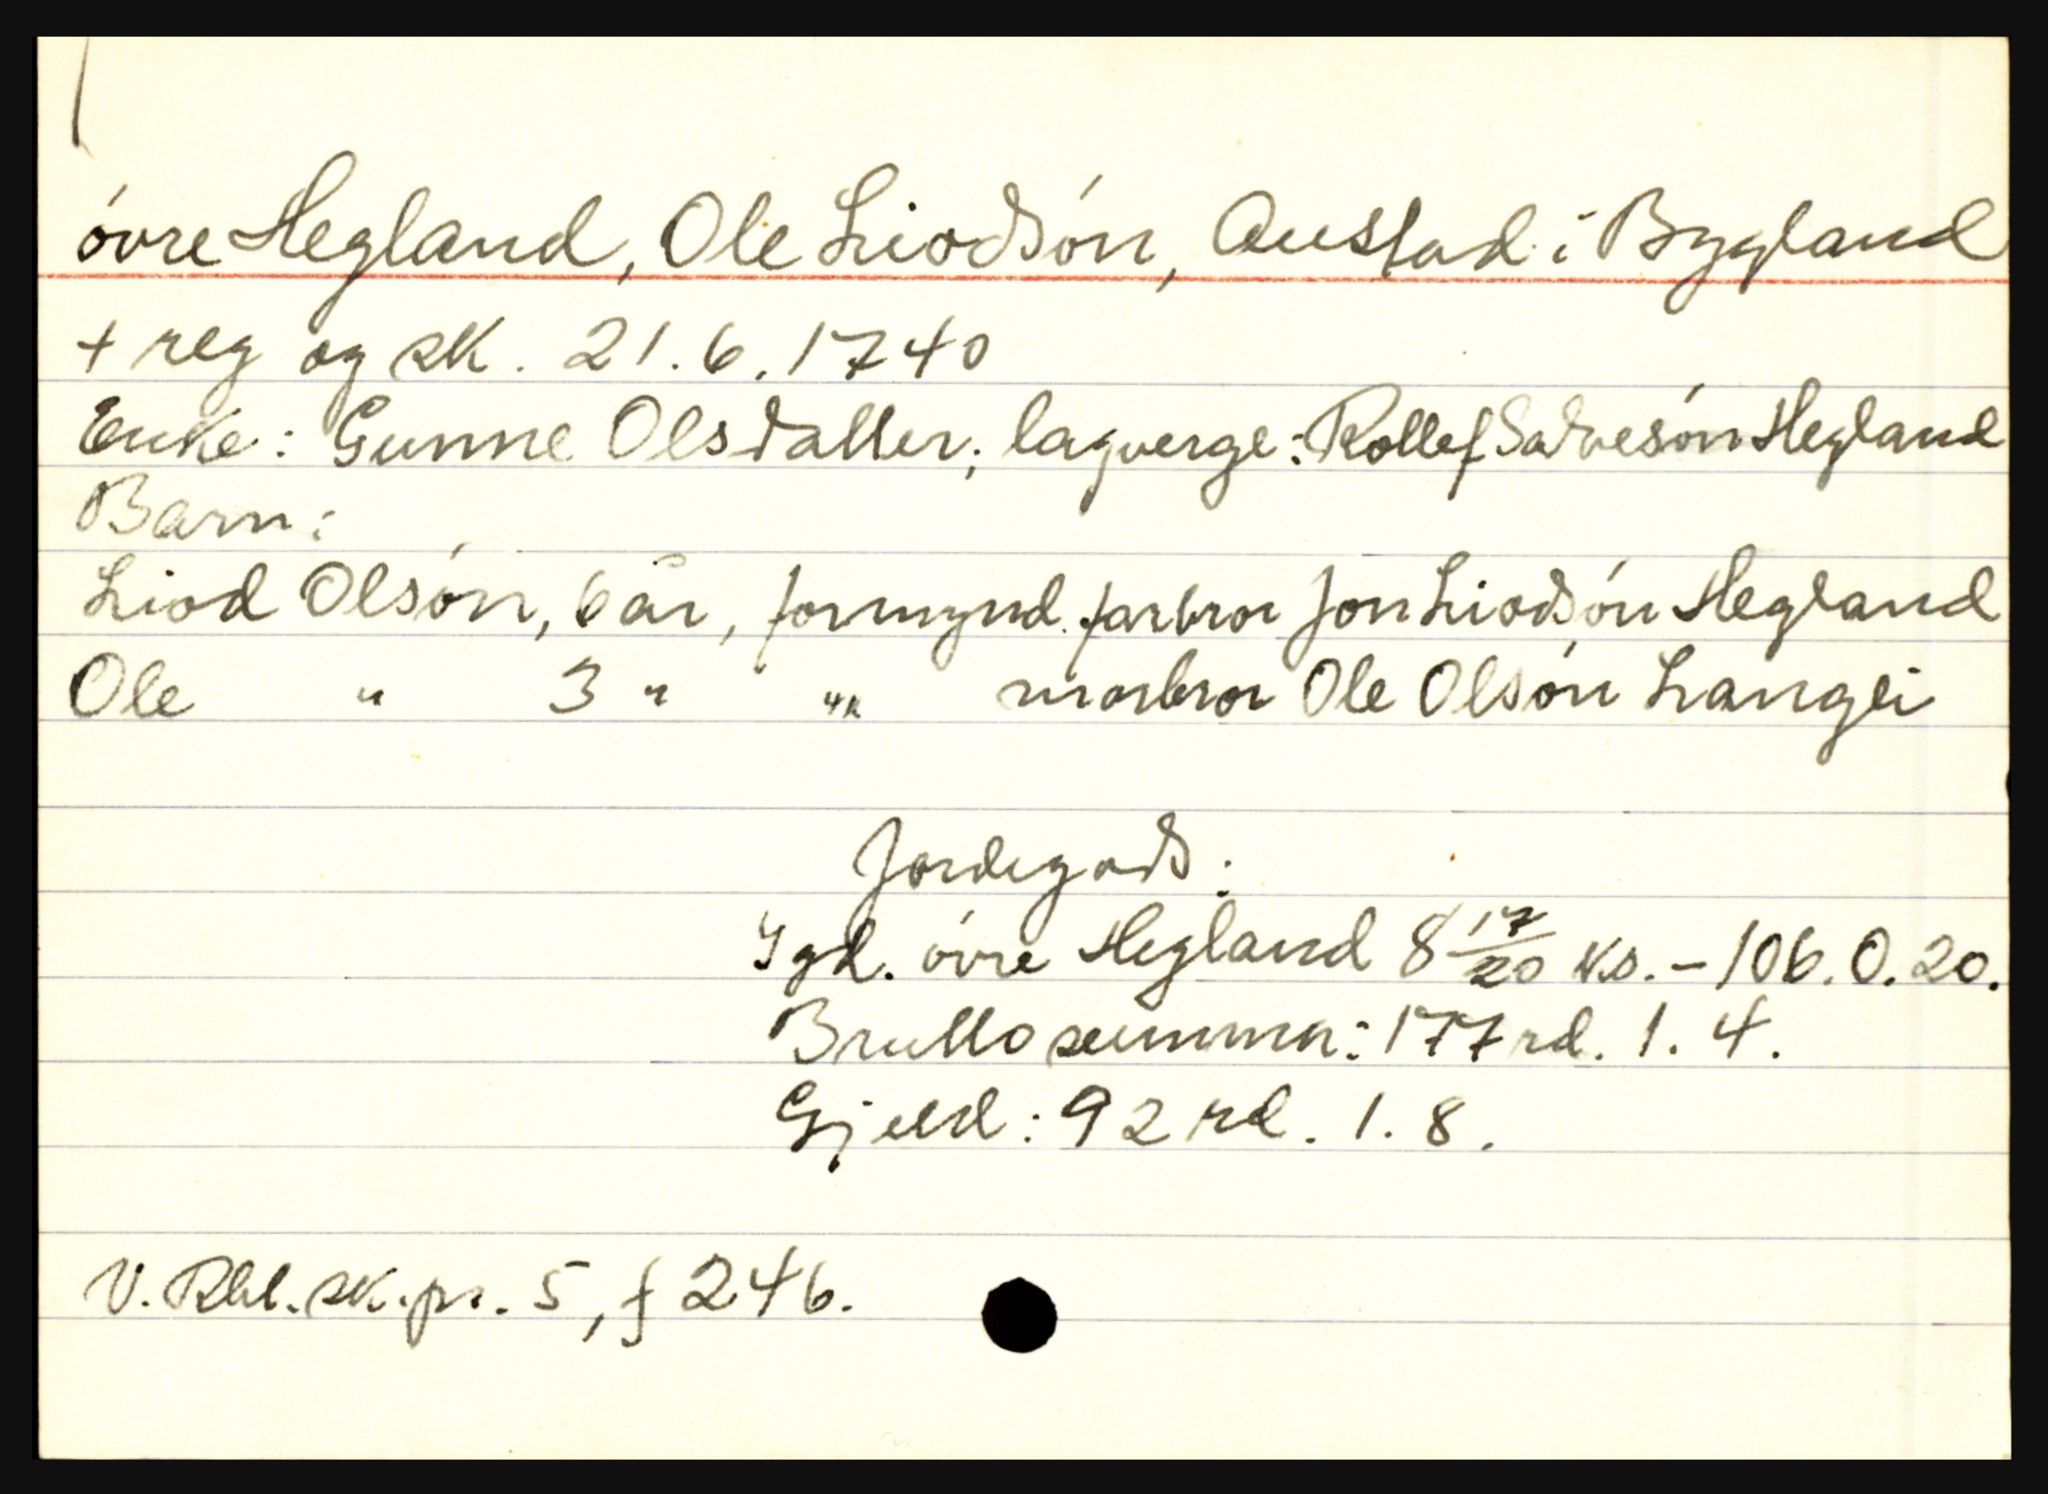 óvre Hegland, Ole Liodsón, Austad i Bygland
+ reg og sk. 21.6.1740
Enke: Gunne Olsdatter; lagverge: Rollef Salvesón Hegland
Barn:
Liod Olsón, 6 år, formynd. farbror Jon Liodsón Hegland
Ole " 3 " "" morbror Ole Olsón Langei
Jordegods:
I gd. óvre Hegland 8 17/20 ks. - 106.0.20.
Brutto summen: 177 rd. 1. 4.
Gjeld: 92 rd. 1. 8.
V. Rbl. sk. pr. 5, f 246.